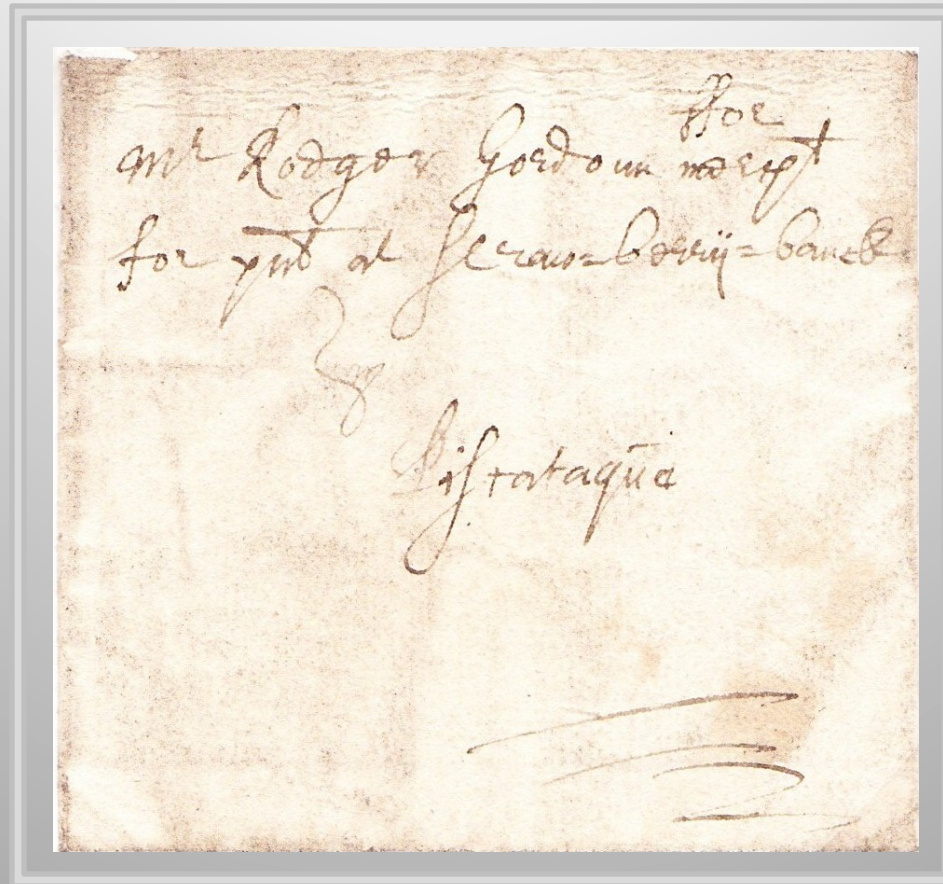 ffor
Mr Rodger Gordoun mercht
for pnt at Straw=berrij=banck
Piscataqúa